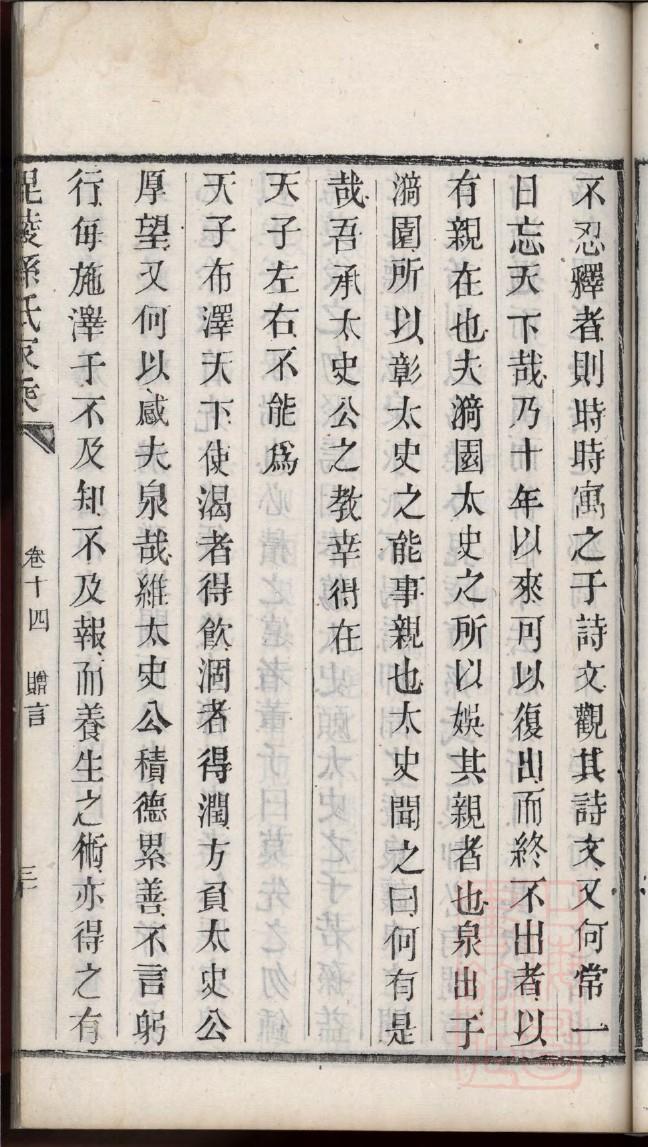 不忍釋者則時時寓之于詩文觀其詩文又何常一
日忘天下哉乃十年以來可以復出而終不出者以
有親在也夫漪園太史之所以娛其親者也泉出于
漪園所以彰太史之能事親也太史聞之曰何有是
哉吾承太史公之教幸得在
天子左右不能爲
天子布澤天下使渴者得飲涸者得潤方負太史公
厚望又何以感夫泉哉維太史公積德累善不言躬
行每施澤于不及知不及報而養生之術亦得之有
毘陵孫氏家乘
卷十四 贈言
三